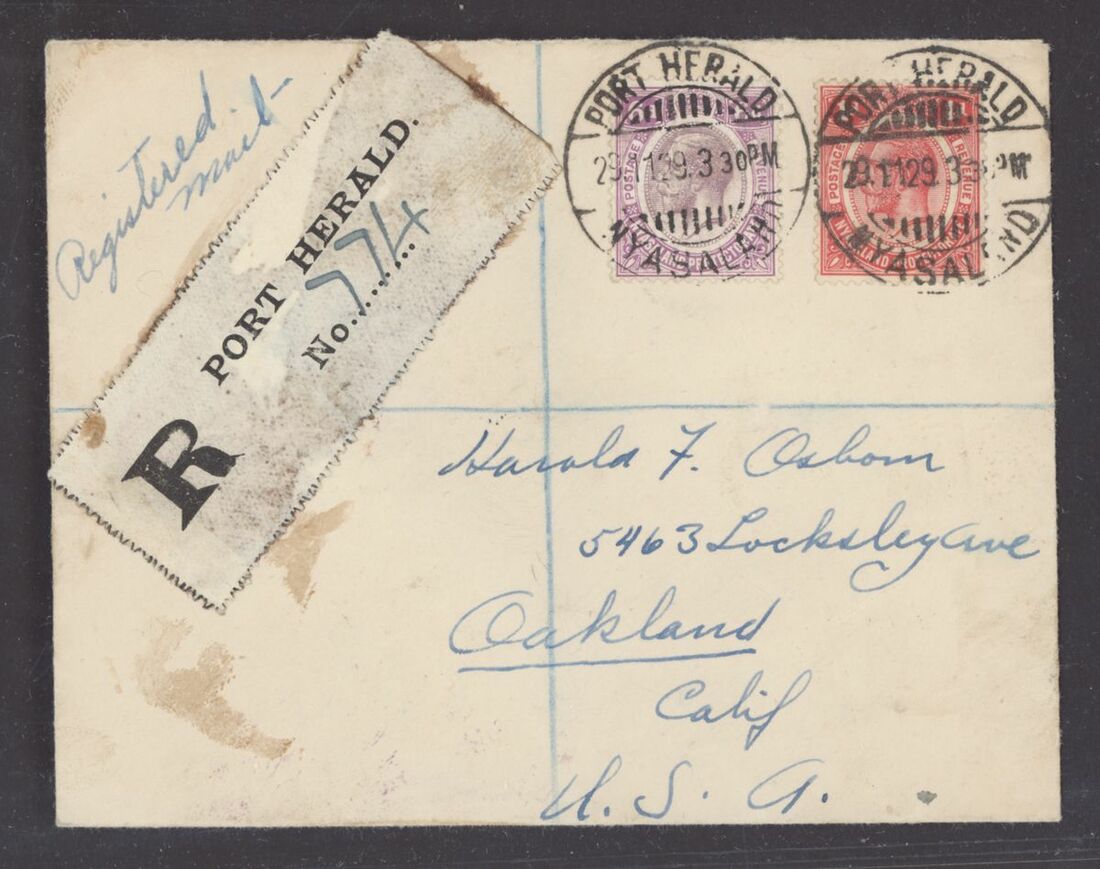 Registered
Mail
R
PORT HERALD.
No. 574
PORT HERALD
29.11.29.3 30PM
NYASALAND
POSTAGE
PORT HERALD
29.11.29.3 PM
NYASALAND
POSTAGE
REVENUE
Harold F. Osborn
5463 Locksley Ave
Oakland
Calif
U. S. A.